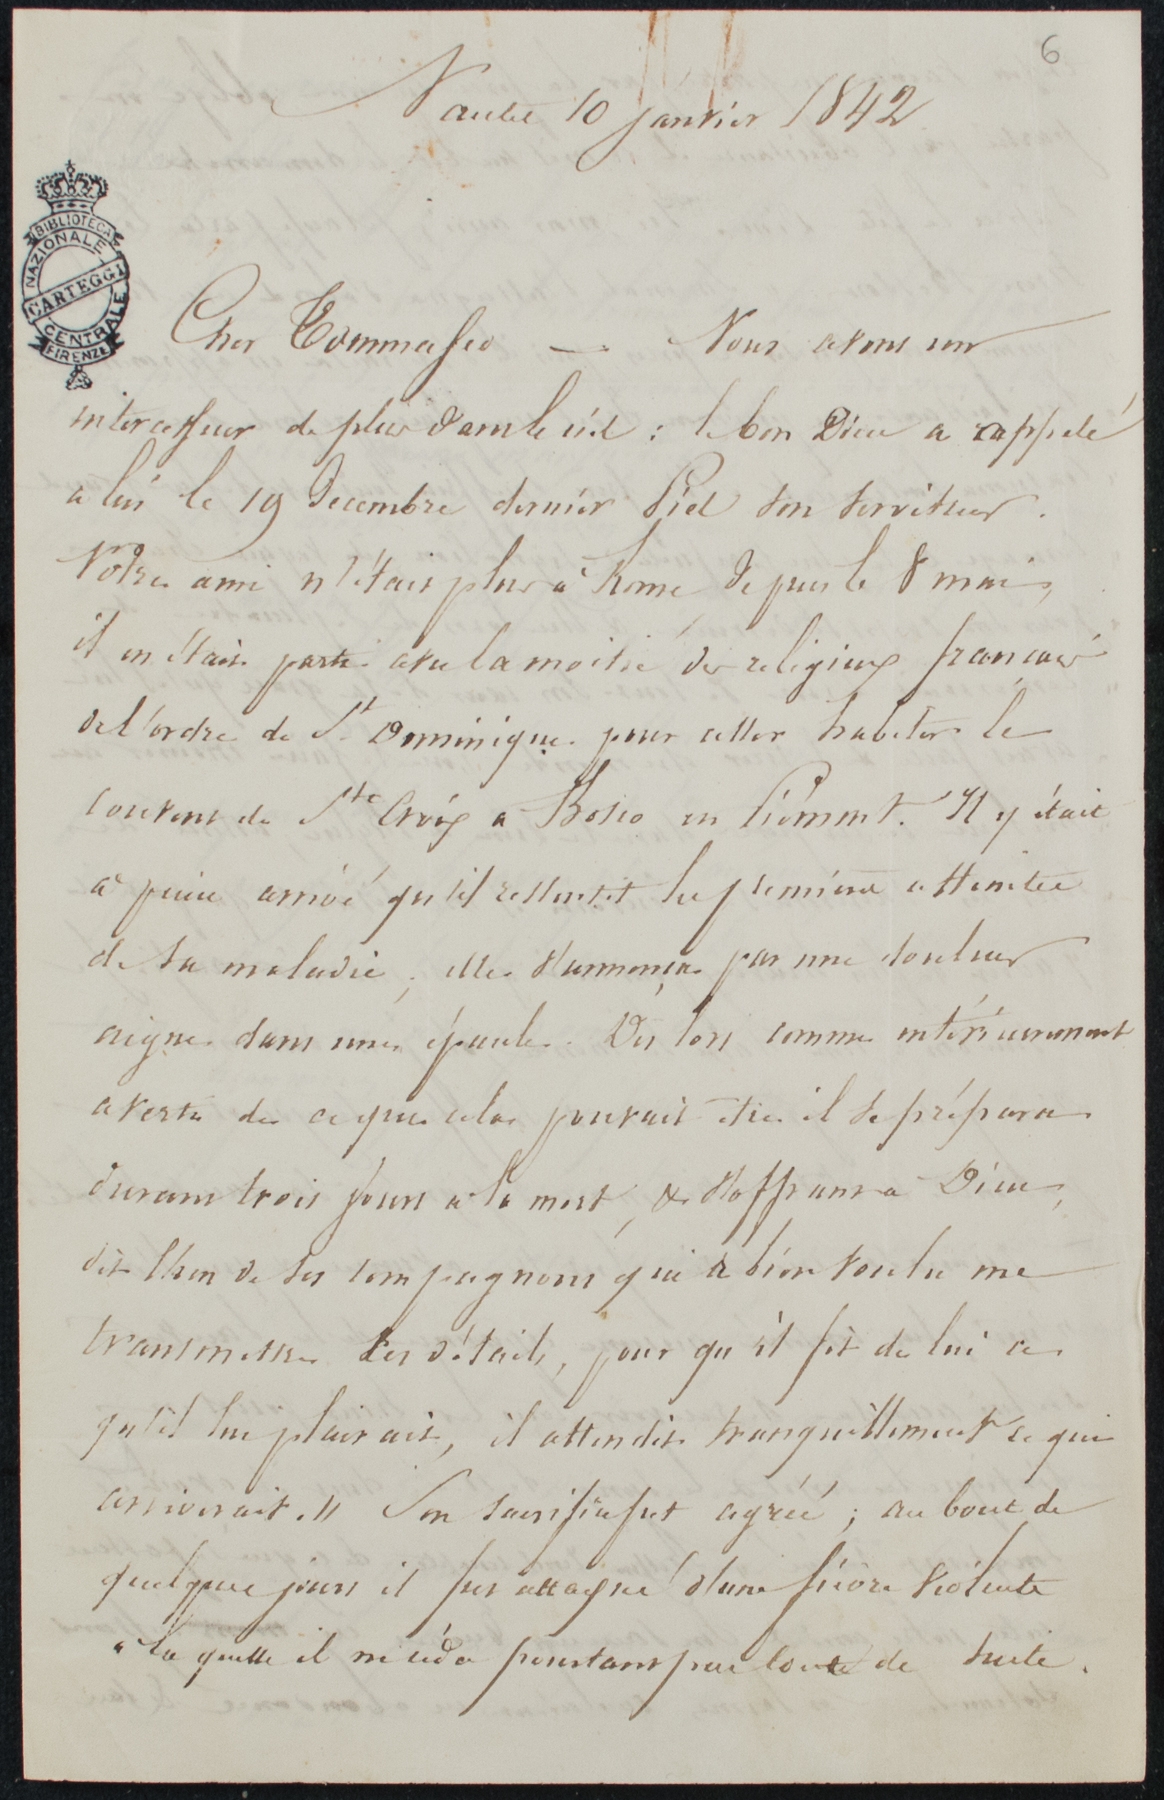 6
Nantes 10 janvier 1842
BIBLIOTECA
NAZIONALE
CARTEGGI
CENTRALE
FIRENZE
Cher Tommaseo — Nous avons un
intercesseur de plus dans le ciel : le bon Dieu a rappelé
a lui le 19 Decembre dernier Piel son serviteur.
Notre ami n'était plus à Rome depuis le 8 mai,
il en était parti avec la moitié des religieux français
de l'ordre de St Dominique pour aller habiter le
couvent de Ste Croix a Bosco en Piémont. Il y était
a peine arrivé qu'il ressentit les premières atteintes
de sa maladie, elle s'annonça par une douleur
aigue dans une épaule. Dès lors comme intérieurement
averti de ce que cela pouvait être il se prépara
durant trois jours a la mort, & s'offrant a Dieu,
dit l'un de ses compagnons qui a bien voulu me
transmettre ces détails, pour qu'il fit de lui ce
qu'il lui plairait, il attendit tranquillement ce qui
arriverait. » Son sacrifice fut agréé ; au bout de
quelques jours il fut attaqué d'une fièvre violente
a la quelle il ne céda pourtant pas tout de suite.